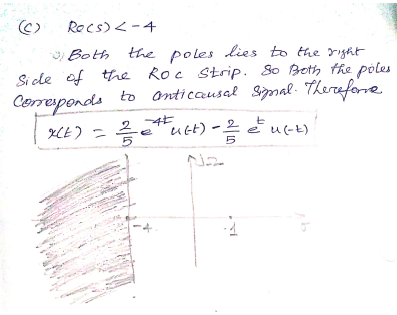 (C) Re(s) < -4
Both the poles lies to the right
Side of the ROC strip. So Both the poles
Corresponds to anticausal signal. Therefore
x(t) = 2/5 e^-4t u(-t) - 2/5 e^t u(-t)
-4
1